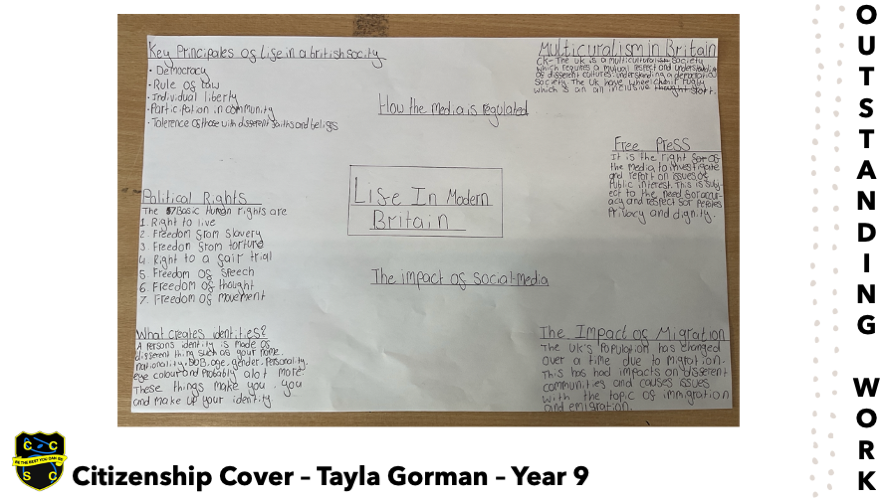 Key Principales of Life in a british socity
· Democracy
· Rule of law
· Individual liberty
· Participation in community
· Tolerence of those with different faiths and beliefs
How the media is regulated
Multicuralism In Britain
CK- The UK is a multiculturalism society
which requires a mutual respect and understanding
of different cultures. understanding a
society. The UK have wheelchair rugby
which is an all inclusive sport.
Free Press
It is the right for of
the media to investigate
and report on issues of
Public interest. This is subj-
ect to the need for accur-
acy and respect for peoples
Privacy and dignity.
Life In Modern
Britain
Political Rights
The 7 Basic human rights are
1. Right to live
2. Freedom from slavery
3. Freedon from torture
4. Right to a fair trial
5 Freedom of speech
6. Freedom of thought
7. Freedom of movement
The impact of social-media
What creates identities?
A persons identity is made of
different thing such as your name,
nationality, DOB, age, gender, Personality,
eye colour and Probably alot more.
These things make you, you
and make up your identity
The Impact of Migration
The UK's Population has changed
over a time due to migration.
This has had impacts on different
communities and causes issues
with the topic of immigration
and emigration.
C C
BE THE BEST YOU CAN BE
S C
Citizenship Cover – Tayla Gorman – Year 9
OUTSTANDING WORK